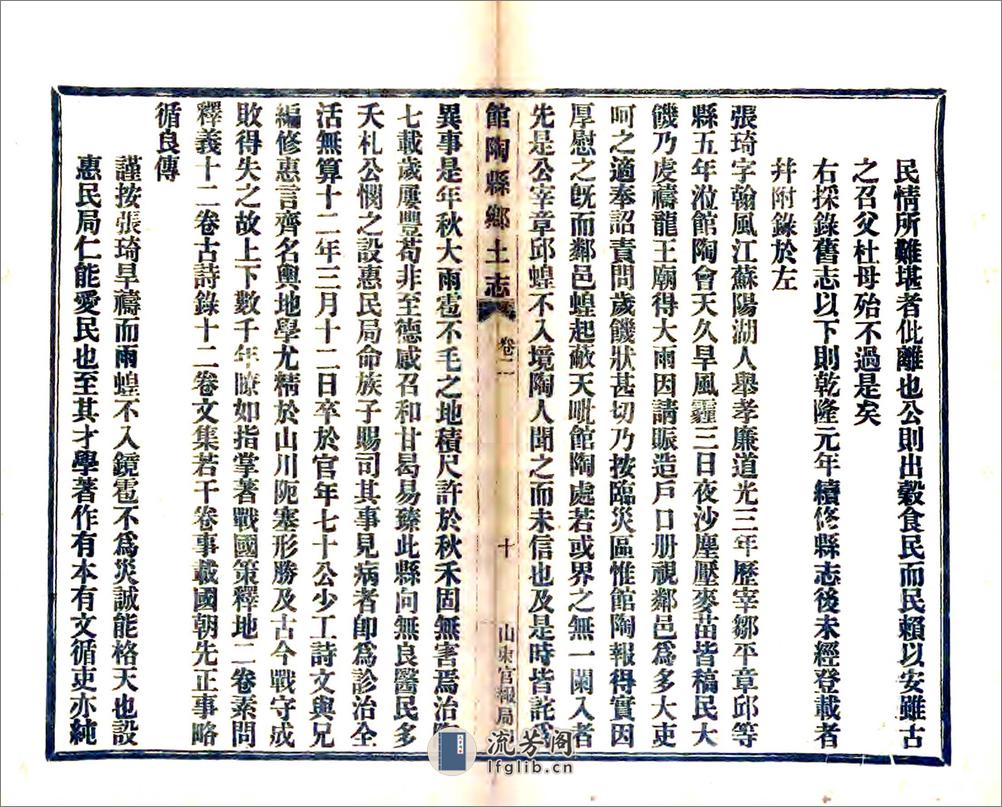 民情所難堪者仳離也公則出穀食民而民賴以安雖古
之召父杜母殆不過是矣
右採錄舊志以下則乾隆元年續修縣志後未經登載者
幷附錄於左
張琦字翰風江蘇陽湖人舉孝廉道光三年歷宰鄒平章邱等
縣五年涖館陶會天久旱風霾三日夜沙塵壓麥苗皆稿民大
饑乃虔禱龍王廟得大雨因請賑造戶口册視鄰邑爲多大吏
呵之適奉詔責問歲饑狀甚切乃按臨災區惟館陶報得實因
厚慰之旣而鄰邑蝗起蔽天毗館陶處若或界之無一闌入者
先是公宰章邱蝗不入境陶人聞之而未信也及是時皆詫爲
館陶縣鄉土志
卷二
十
山東官報局
異事是年秋大雨雹不毛之地積尺許於秋禾固無害焉治陶
七載歲屢豐苟非至德感召和甘曷易臻此縣向無良醫民多
夭札公憫之設惠民局命族子賜司其事見病者卽爲診治全
活無算十二年三月十二日卒於官年七十公少工詩文與兄
編修惠言齊名輿地學尤精於山川阨塞形勝及古今戰守成
敗得失之故上下數千年瞭如指掌著戰國策釋地二卷素問
釋義十二卷古詩錄十二卷文集若干卷事載國朝先正事略
循良傳
謹按張琦旱禱而雨蝗不入鏡雹不爲災誠能格天也設
惠民局仁能愛民也至其才學著作有本有文循吏亦純
流芳閣
lfglib.cn